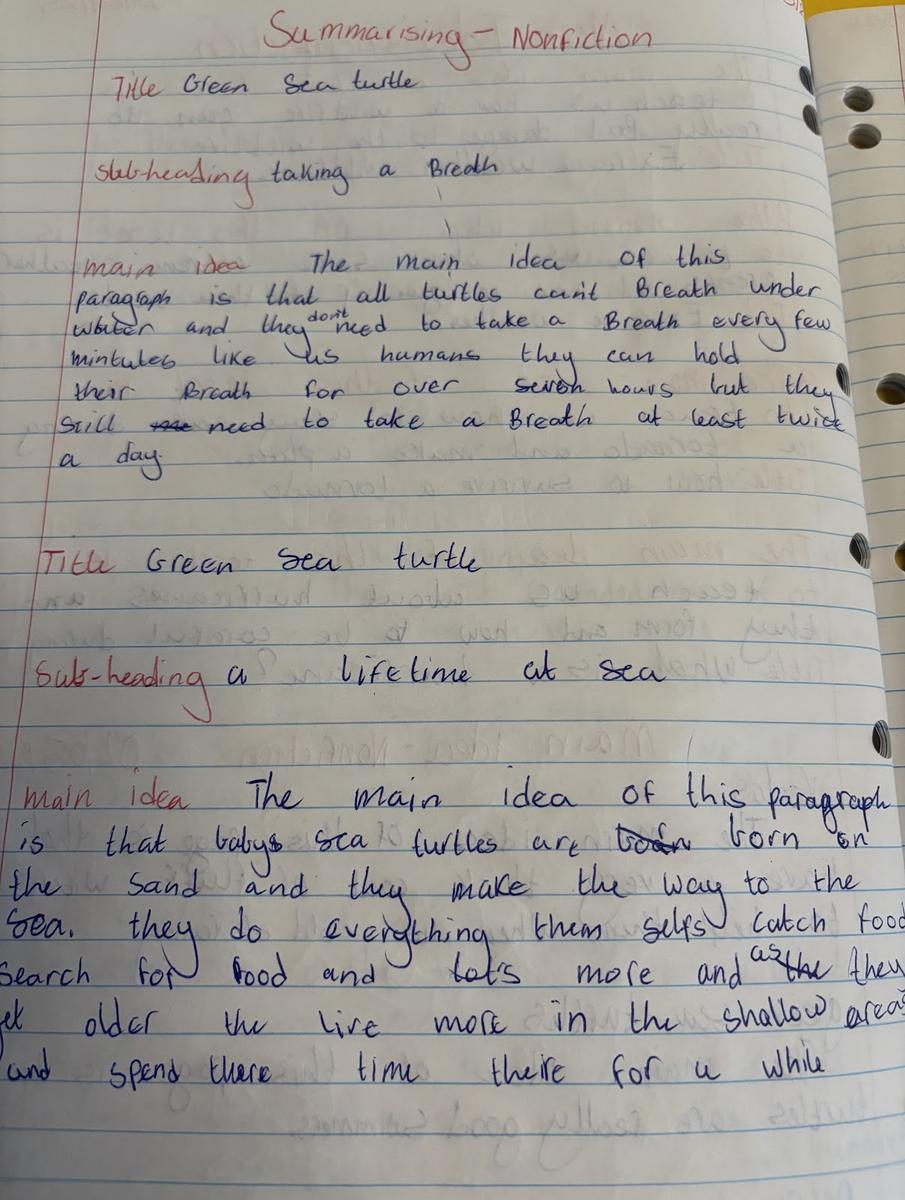 Summarising - Nonfiction
Title Green Sea turtle
Sub-heading taking a Breath
main idea The main idea of this
paragraph is that all turtles can't Breath under
water and they don't need to take a Breath every few
mintutes like us humans they can hold
their Breath for over seven hours but they
still need to take a Breath at least twice
a day.
Title Green Sea turtle
Sub-heading a lifetime at sea
main idea The main idea of this paragraph
is that babys sea turtles are born on
the sand and they make the way to the
sea. they do everything them selfs catch food
search for food and lots more and as they
get older the live more in the shallow areas
and spend there time theire for a while